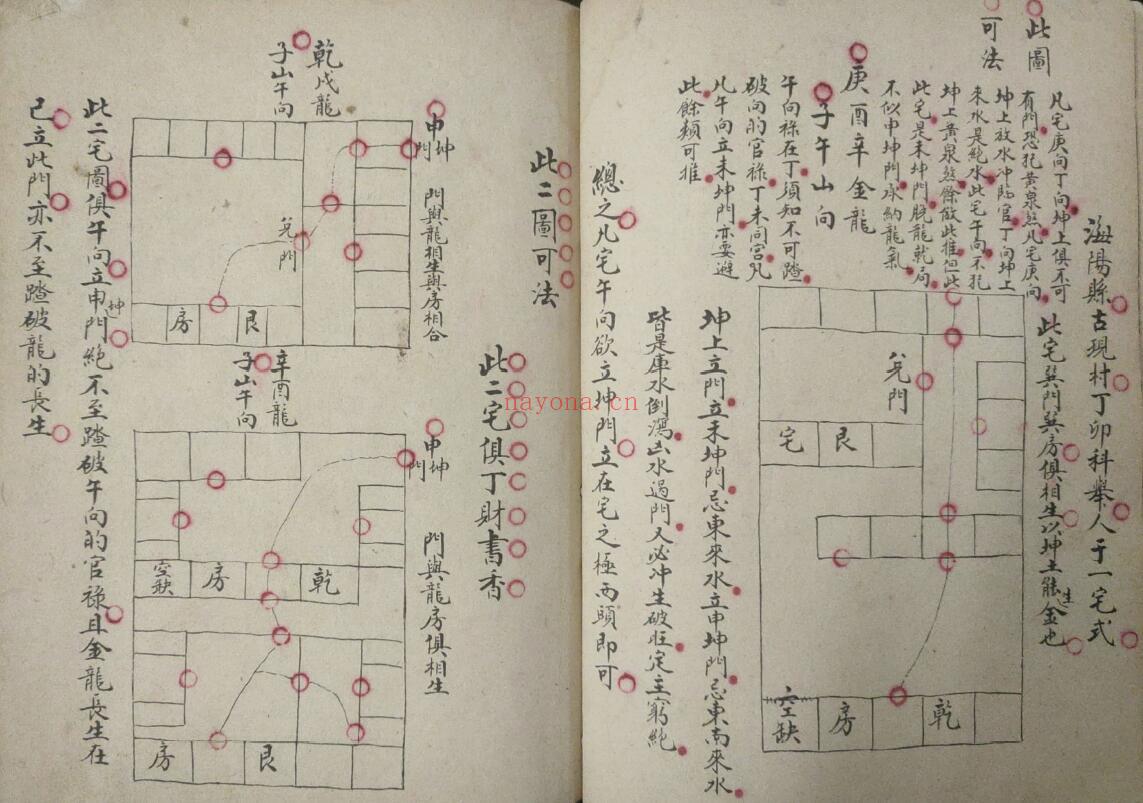 此圖
可法
海陽縣古現村丁卯科舉人于一宅式
此宅巽門巽房俱相生以坤土能生金也
凡宅庚向丁向坤上俱不可
有門恐犯黃泉煞凡宅庚向
坤上放水冲臨官丁向坤上
來水是絕水此宅午向不犯
坤上黃泉煞餘倣此推但此
此宅是未坤門脫龍乾局
不似申坤門承納龍氣
庚酉辛金龍
子午山向
午向祿在丁須知不可踏
破向的官祿丁未同宮凡
凡午向立未坤門亦要避
此餘類可推
兌門
宅
艮
空缺
房
乾
坤上立門立未坤門忌東來水立申坤門忌東南來水
皆是庫水倒瀉山水過門又必冲生破旺定主窮絕
總之凡宅午向欲立坤門立在宅之極西頭即可
此二圖可法
此二宅俱丁財書香
乾戌龍
子山午向
申坤門
門與龍相生與房相合
兌門
房
艮
辛酉龍
子山午向
申坤門
門與龍房俱相生
空缺
房
乾
房
艮
此二宅圖俱午向立申坤門絕不至踏破午向的官祿且金龍長生在
己立此門亦不至踏破龍的長生
nayona.cn